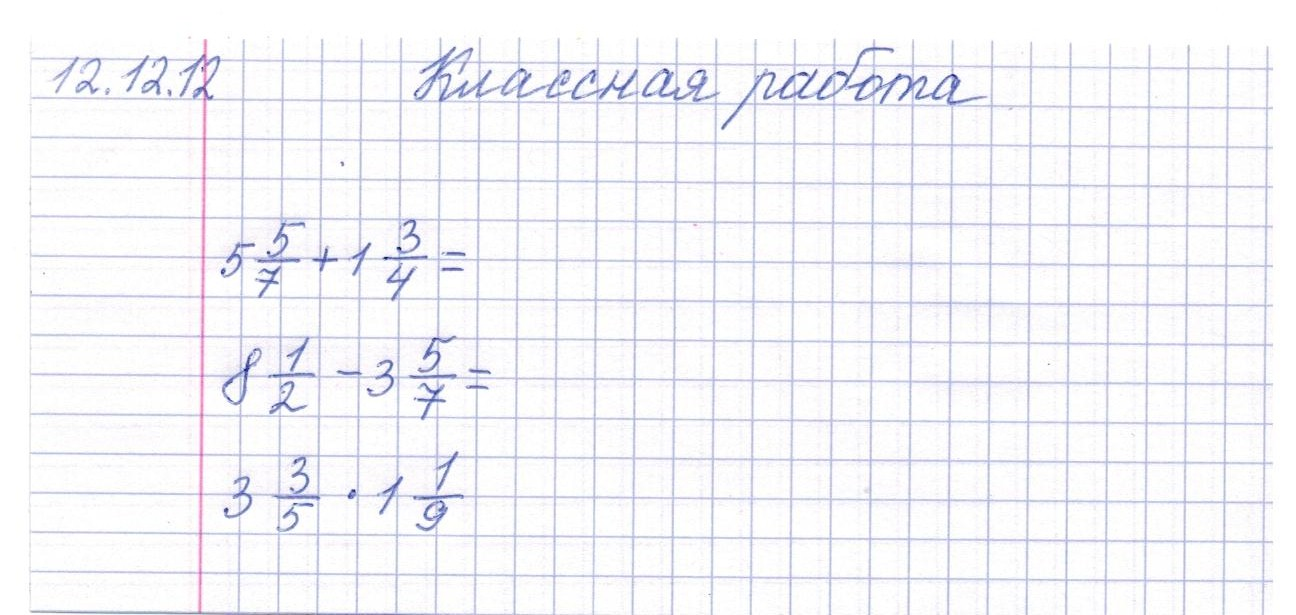 12.12.12 Классная работа
5 5/7 + 1 3/4 =
8 1/2 - 3 5/7 =
3 3/5 · 1 1/9